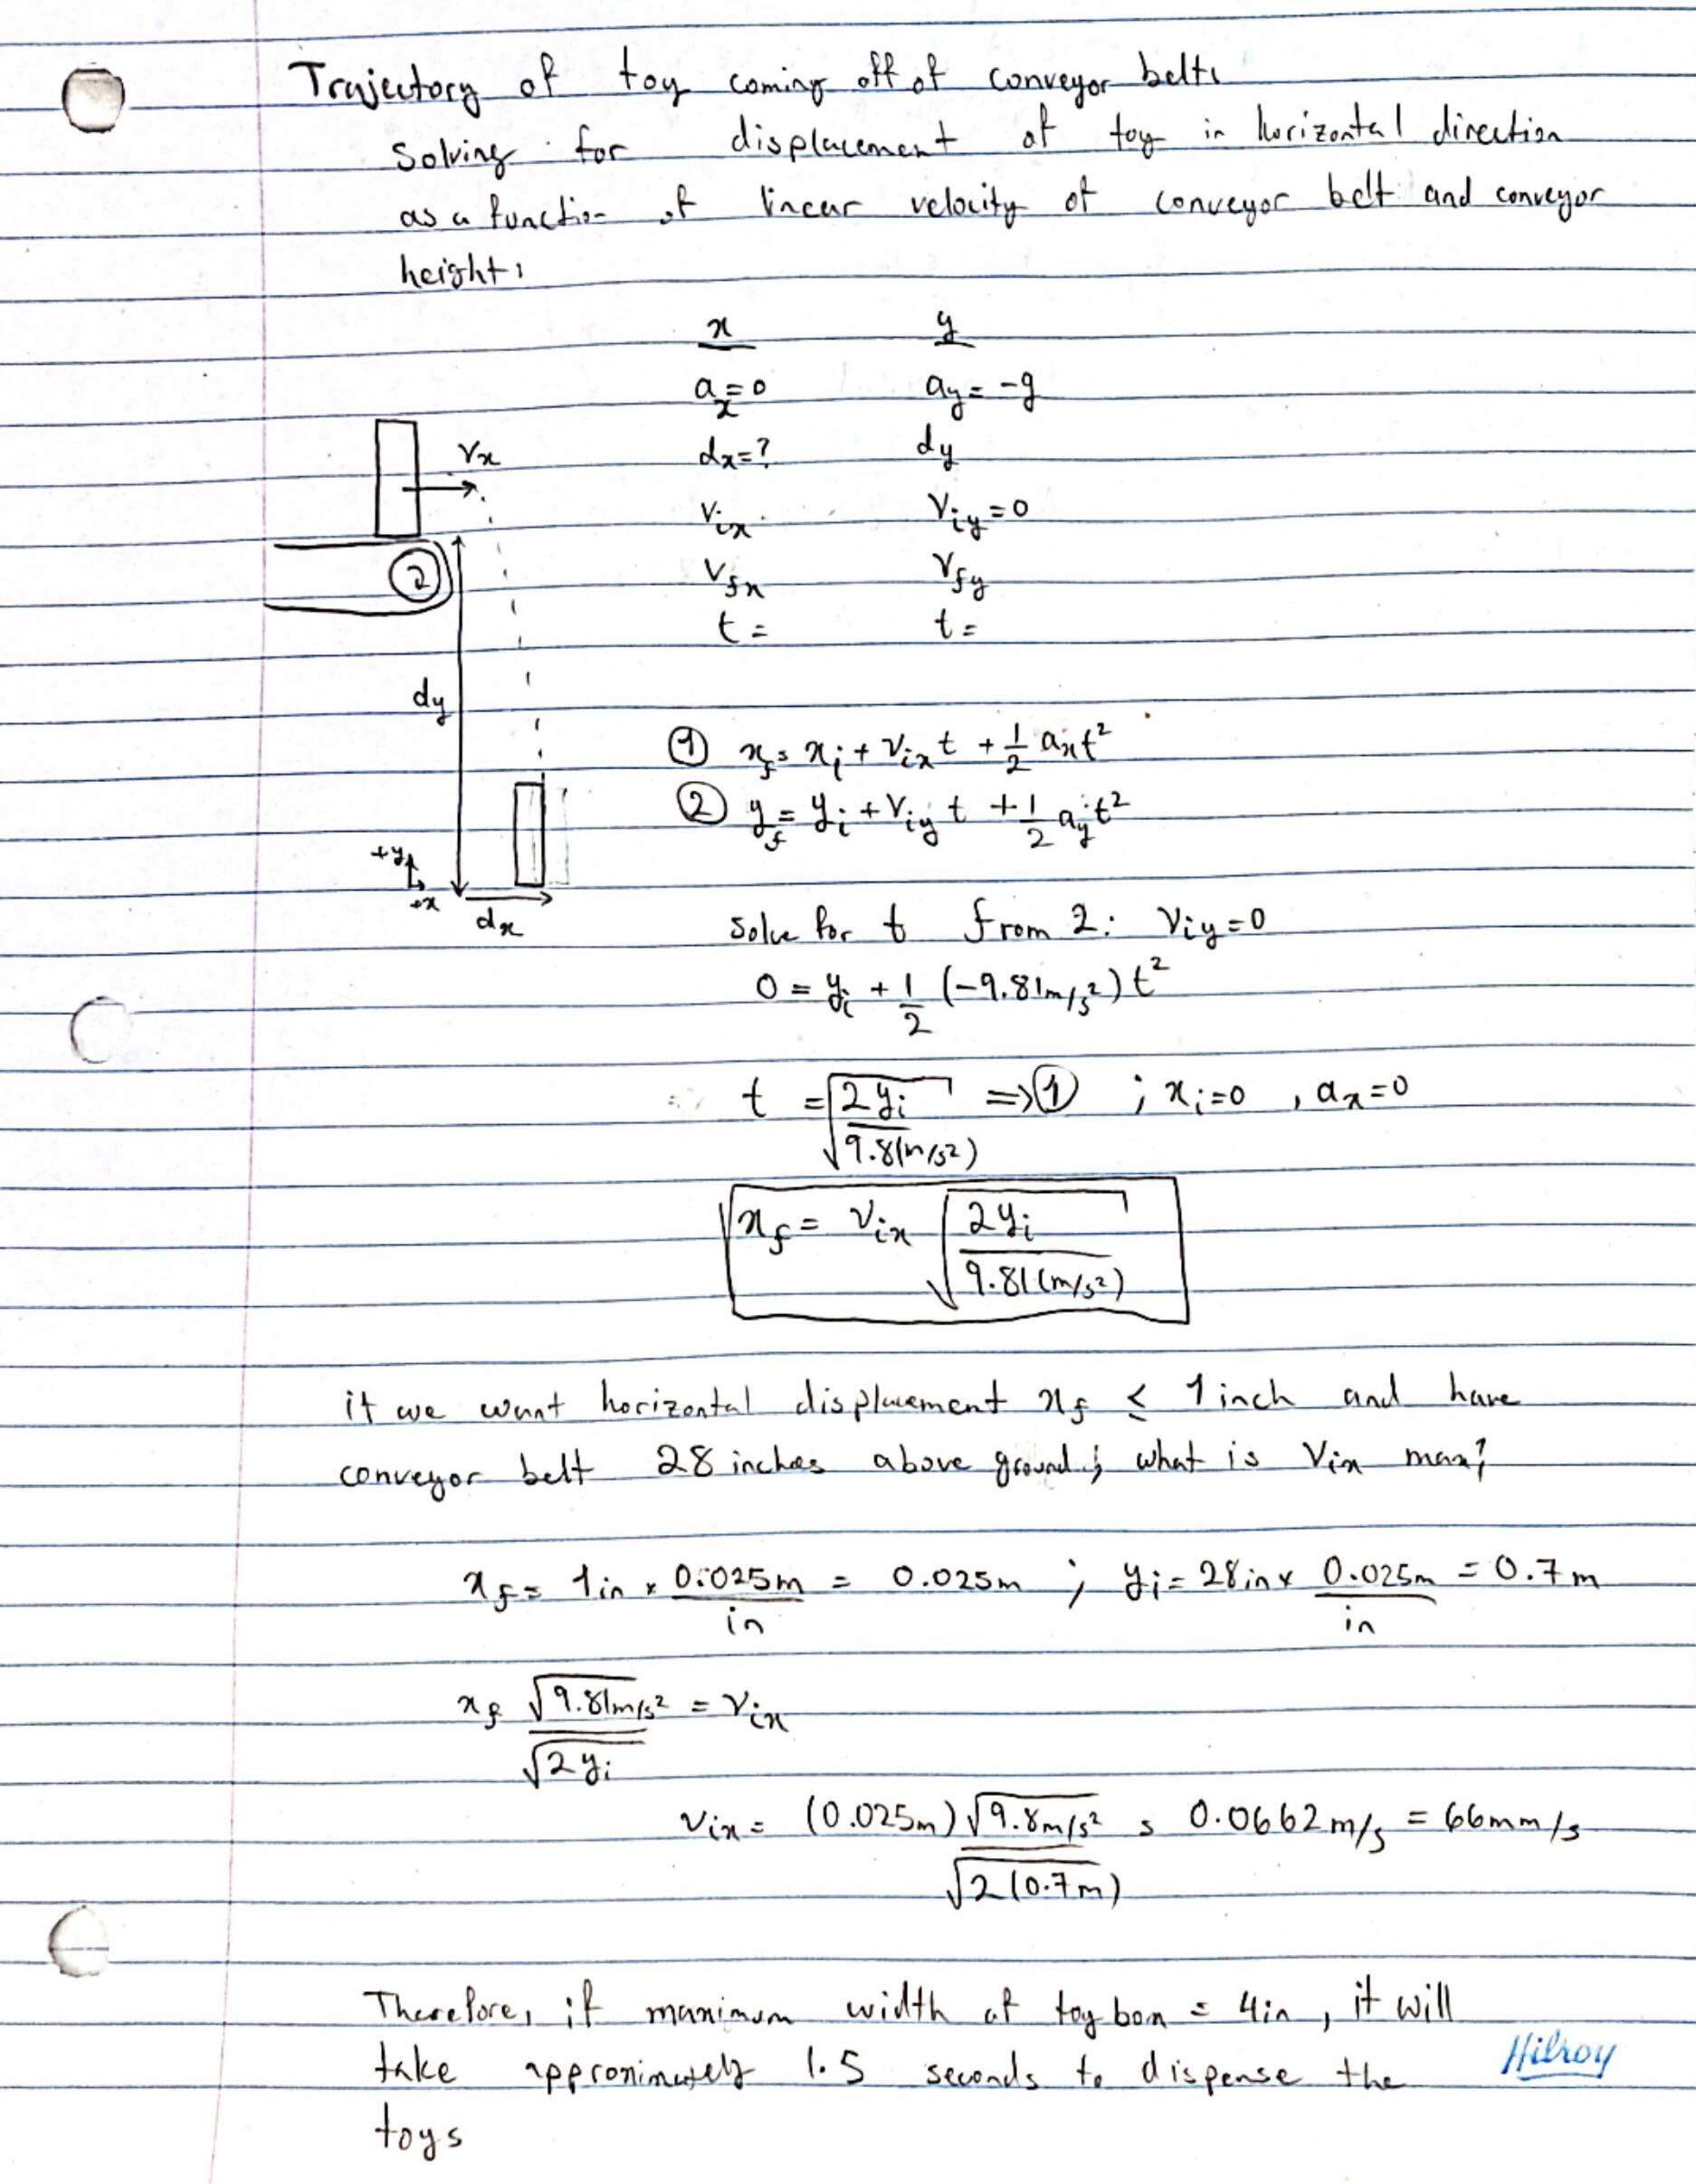 Trajectory of toy coming off of conveyor belt:
Solving for displacement of toy in horizontal direction
as a function of linear velocity of conveyor belt and conveyor
height:
x y
a_x=0 a_y=-g
d_x=? d_y
V_ix V_iy=0
V_fx V_fy
t= t=
V_x
2
d_y
+y
+x
d_x
① x_f = x_i + V_ix t + 1/2 a_x t²
② y_f = y_i + V_iy t + 1/2 a_y t²
Solve for t from 2: V_iy=0
0 = y_i + 1/2 (-9.81m/s²) t²
t = √(2y_i / 9.81m/s²) => ① ; x_i=0 , a_x=0
x_f = V_ix √(2y_i / 9.81(m/s²))
if we want horizontal displacement x_f ≤ 1 inch and have
conveyor belt 28 inches above ground; what is V_ix max?
x_f = 1in × 0.025m/in = 0.025m ; y_i = 28in × 0.025m/in = 0.7m
x_f √9.81m/s² / √2y_i = V_ix
V_ix = (0.025m) √9.8m/s² / √2(0.7m) = 0.0662m/s = 66mm/s
Therefore, if maximum width of toy box = 4in, it will
take approximately 1.5 seconds to dispense the
toys
Hilroy